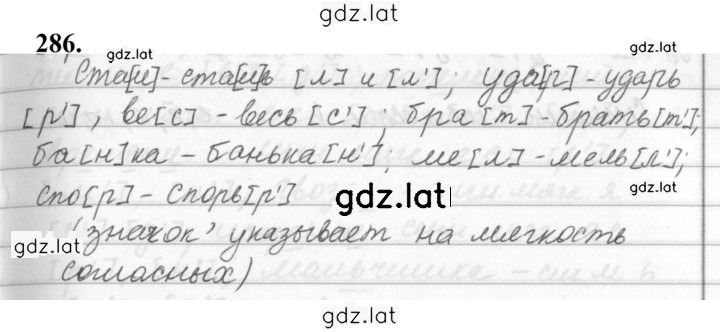 gdz.lat
286.
gdz.lat
Ста[л] - ста[л]ь [л] и [л']; уда[р] - ударь
[р'], ве[с] - весь [с']; бра[т] - брать[т'];
ба[н]ка - банька[н'], ме[л] - мель[л'];
gdz.lat
спо[р] - спорь[р'] gdz.lat
(значок ' указывает на мягкость
gdz.lat
согласных)
gdz.lat